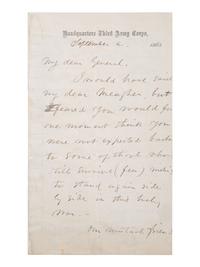 Headquarters Third Army Corps,
September 2, 1863
My dear General.
I would have said
my dear Meagher but
feared you would for
one moment think you
were not expected back
to some of those who
still survive (few) melt
to stand again side
by side in this holy
war. –
Our mustach friend